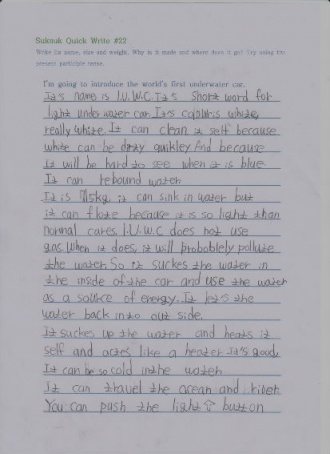 Suknuk Quick Write #22
Write its name, size and weight. Why is it made and where does it go? Try using the
present participle tense.
I'm going to introduce the world's first underwater car.
It's name is I.U.W.C. It's short word for
light underwater car. It's colour is white,
really white. It can clean it self because
white can be dirty quikley. And because
it will be hard to see when it is blue
It can rebound water
It is 715kg. it can sink in water but
it can flote because it is so light than
normal cares. I.U.W.C does not use
gas. When it does, it will probobley pollute
the water. So it suckes the water in
the inside of the car and use the water
as a source of energy. It lets the
water back into out side.
It suckes up the water and heats it
self and actes like a heater. It's good.
It can be so cold in the water
It can travel the ocean and river.
You can push the light ↑ button